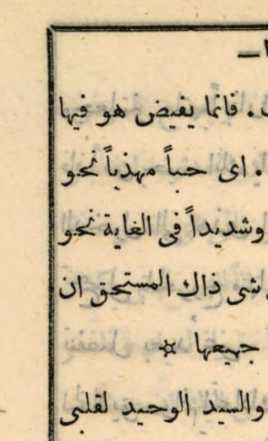 . فانما يفيض هو فيها
. اى حباً مهذباً نحو
وشديداً فى الغاية نحو
شى ذاك المستحق ان
جميعها ¤
والسيد الوحيد لقلبى